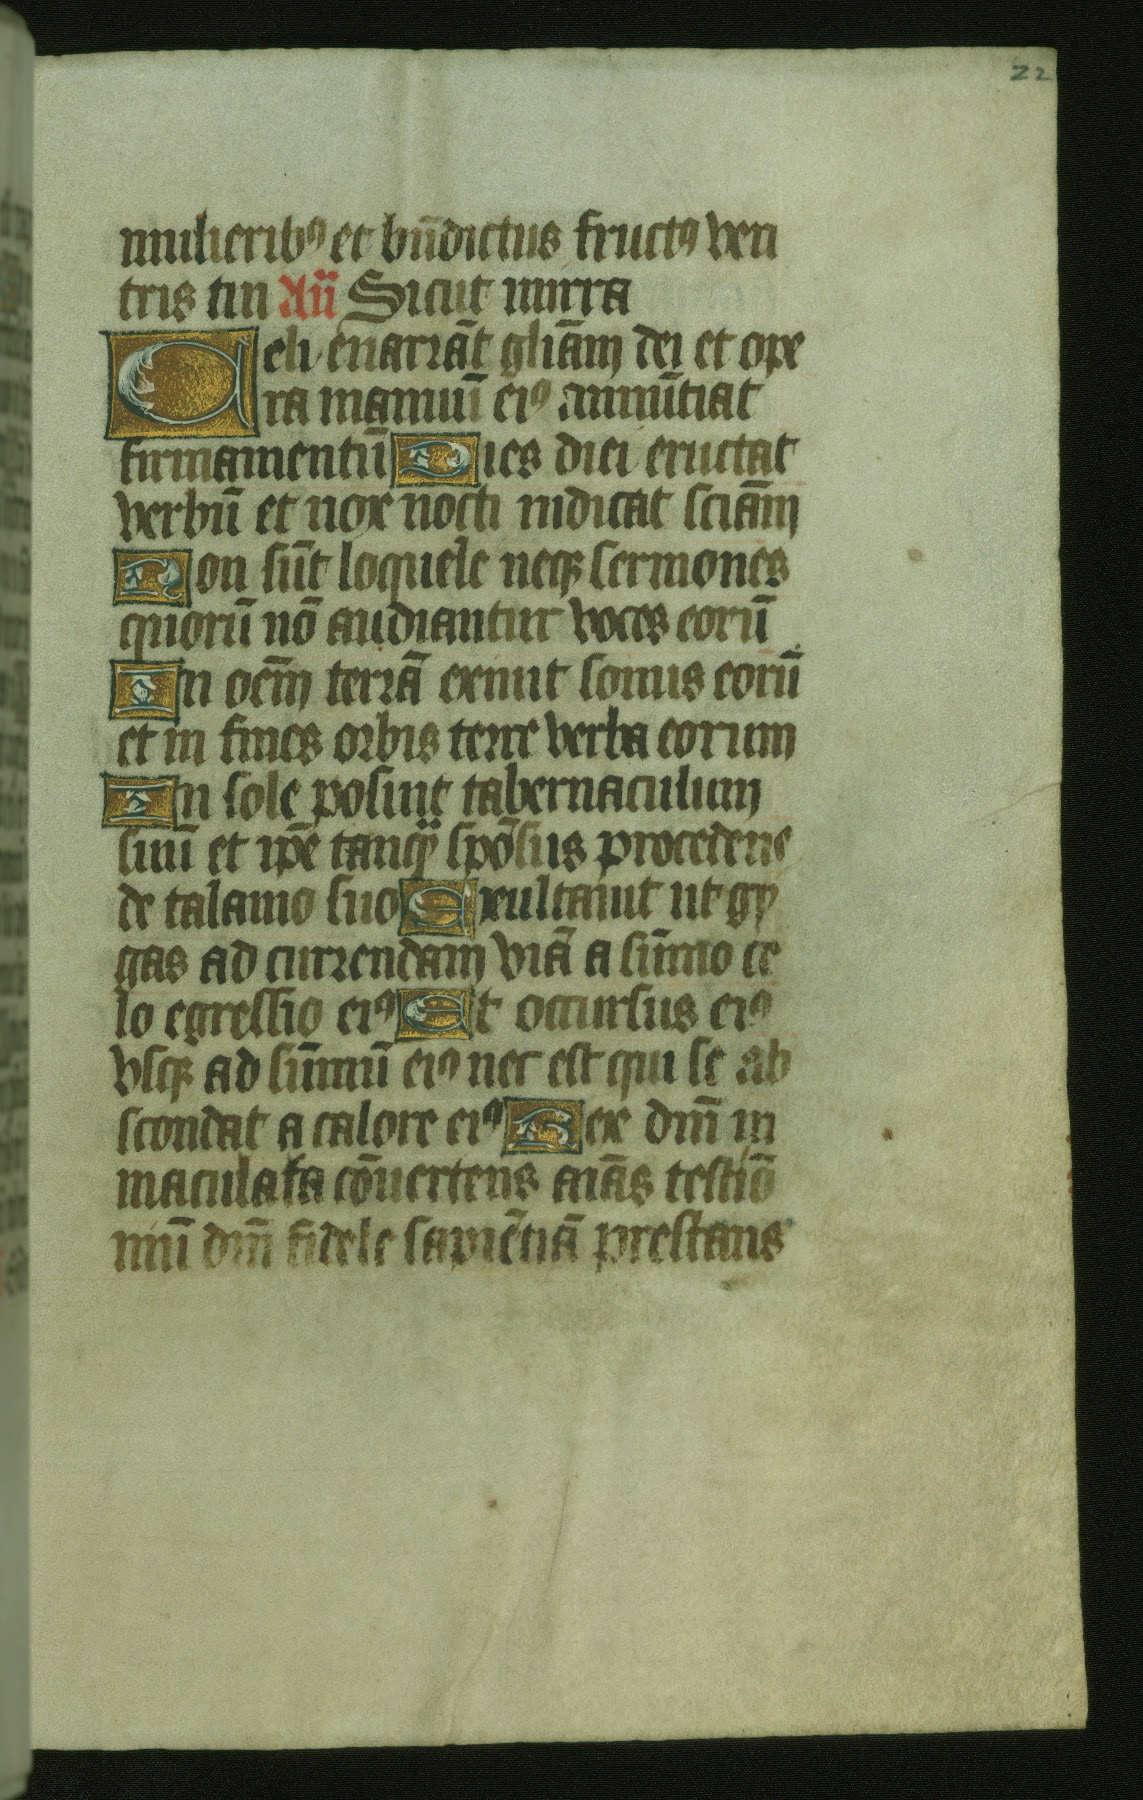 22
mulieribꝰ et bn̄dictus fructꝰ ven
tris tui Añ Sicut mirra
Celi enarrāt gliām dei et ope
ra manuū eiꝰ annūtiat
firmamentū Dies diei eructat
verbū et nox nocti indicat sciām
Non sūt loquele neqꝫ sermones
quorū nō audiantur voces eorū
In oēm terrā exiuit sonus eorū
et in fines orbis terre verba eorum
In sole posuit tabernaculum
suū et ip̄e tanqͣ spōsus procedens
de talamo suo Exultauit ut gy
gas ad currendam viā a sūmo ce
lo egressio eiꝰ Et occursus eiꝰ
vsqꝫ ad sūmū eiꝰ nec est qui se ab
scondat a calore eiꝰ Lex dm̄ in
maculata cōuertens aīās testiō
niū dm̄ fidele sapiētiā prestans